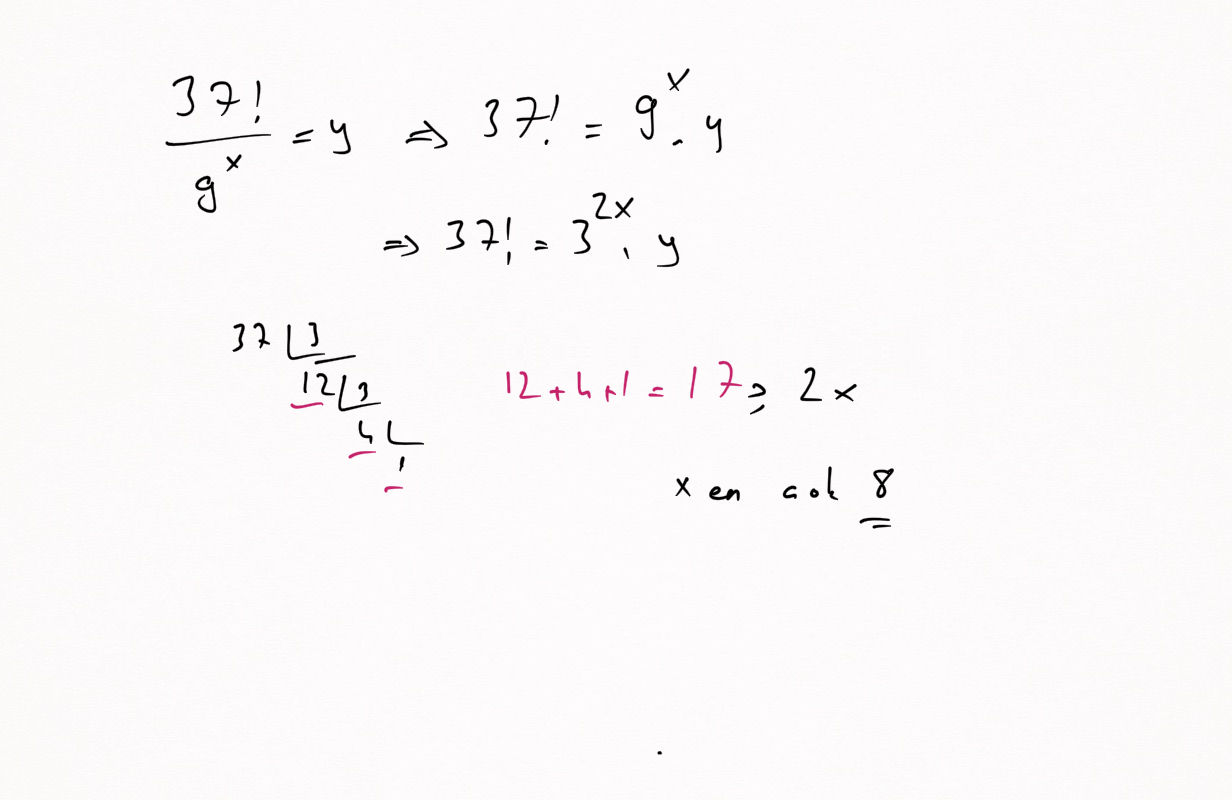 37! / 9^x = y ⇒ 37! = 9^x . y
⇒ 37! = 3^2x . y
37 | 3
12 | 3
12 + 4 + 1 = 17 ≥ 2x
4
1
x en çok 8